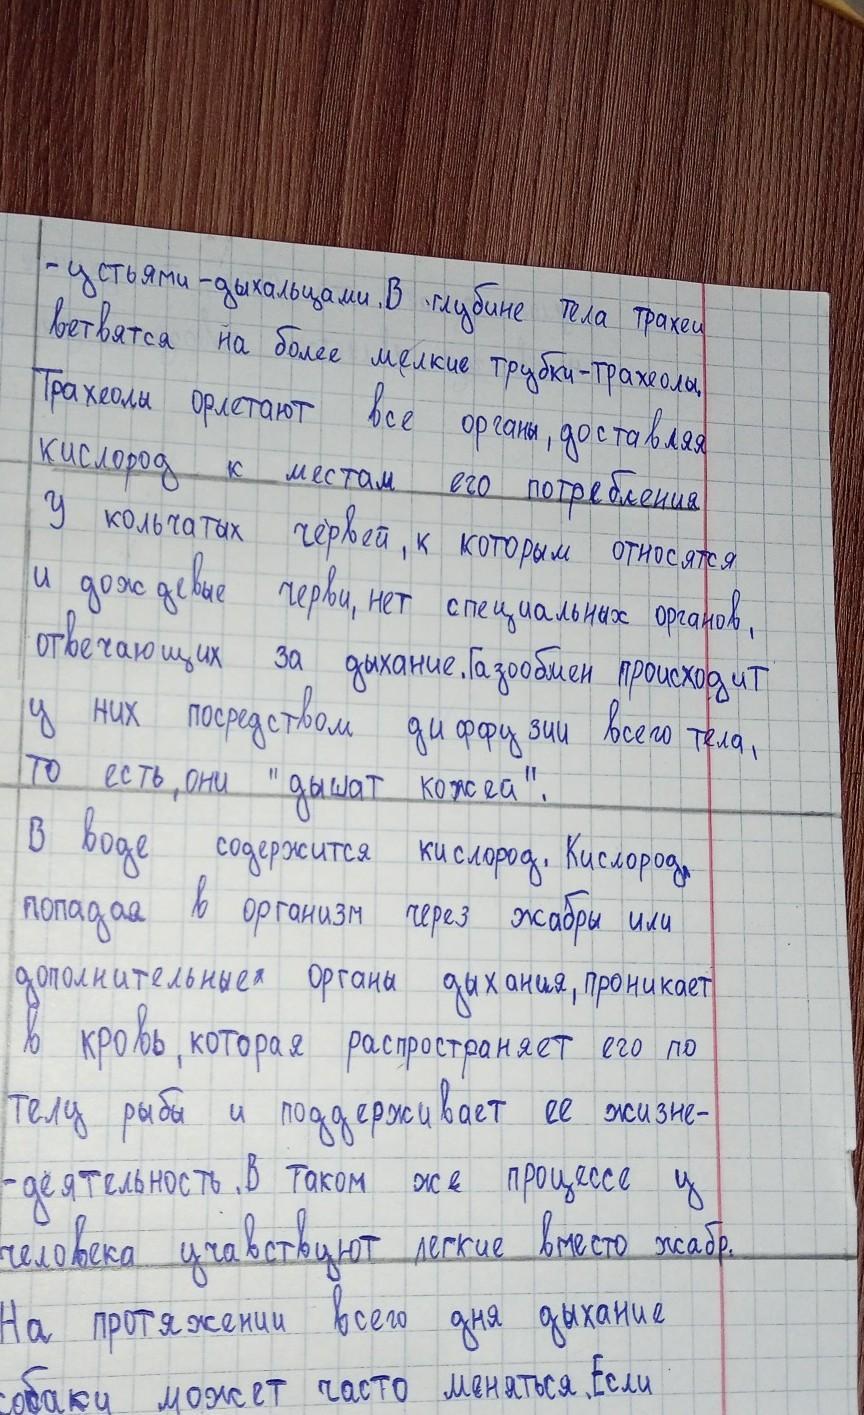 -устьями-дыхальцами. В глубине тела трахеи
ветвятся на более мелкие трубки-трахеолы.
Трахеолы орлетают все органы, доставляя
кислород к местам его потребления
У кольчатых червей, к которым относятся
и дождевые черви, нет специальных органов,
отвечающих за дыхание. Газообмен происходит
у них посредством диффузии всего тела,
то есть, они "дышат кожей".
В воде содержится кислород. Кислород,
попадая в организм через жабры или
дополнительные органы дыхания, проникает
в кровь, которая распространяет его по
телу рыбы и поддерживает ее жизне-
-деятельность. В таком же процессе у
человека учавствуют легкие вместо жабр.
На протяжении всего дня дыхание
собаки может часто меняться. Если